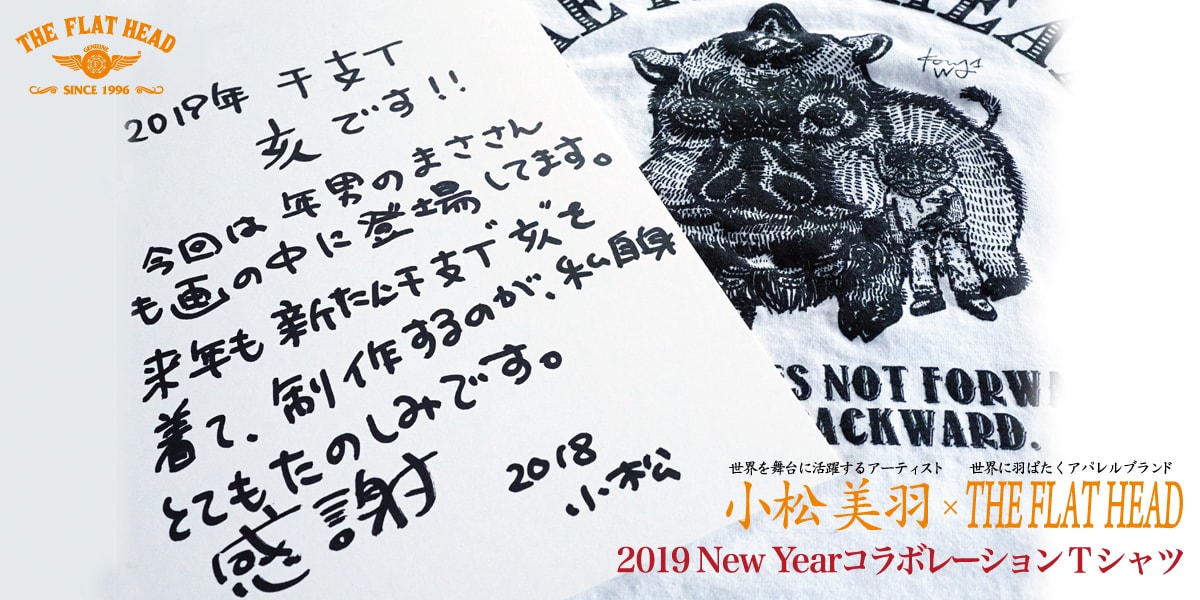 THE FLAT HEAD
GENUINE
SINCE 1996
2019年 干支T
亥です!!
今回は 年男のまささん
も画の中に登場してます。
来年も新たな干支T“亥”を
着て、制作するのが、私自身
とてもたのしみです。
感謝
2018
小松
S NOT FORW
ACKWARD.
世界を舞台に活躍するアーティスト 世界に羽ばたくアパレルブランド
小松美羽×THE FLAT HEAD
2019 New YearコラボレーションTシャツ